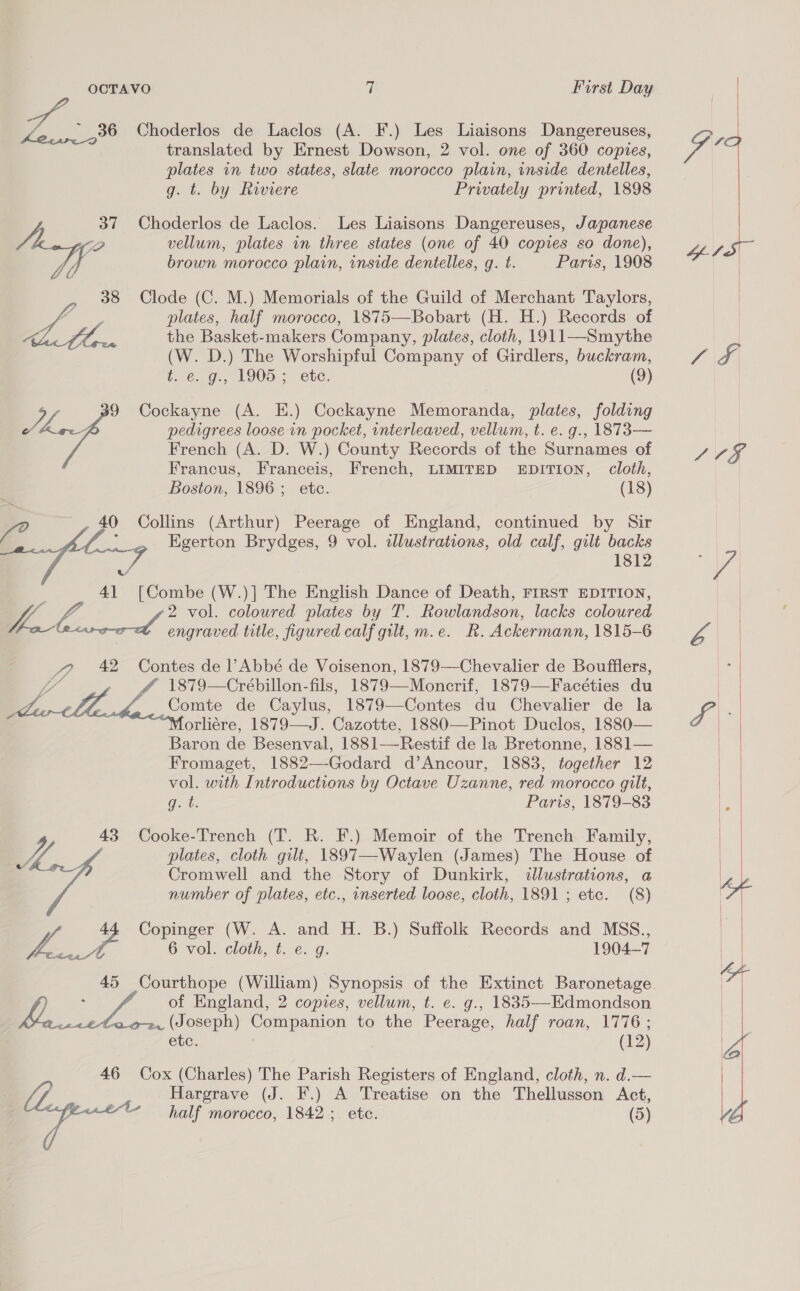 OCTAVO 7 First Day
36 Choderlos de Laclos (A. F.) Les Liaisons Dangereuses,
translated by Ernest Dowson, 2 vol. one of 360 copies,
plates in two states, slate morocco plain, inside dentelles,
g. t. by Riviere Privately printed, 1898
37 Choderlos de Laclos. Les Liaisons Dangereuses, Japanese
vellum, plates in three states (one of 40 copies so done),
brown morocco plain, inside dentelles, g. t. Paris, 1908
38 Clode (C. M.) Memorials of the Guild of Merchant Taylors,
plates, half morocco, 1875—Bobart (H. H.) Records of
the Basket-makers Company, plates, cloth, 1911—Smythe
(W. D.) The Worshipful Company of Girdlers, buckram,
t. e. g., 1905 ; etc. (9)
39 Cockayne (A. E.) Cockayne Memoranda, plates, folding
pedigrees loose in pocket, interleaved, vellum, t. e. g., 1873—
French (A. D. W.) County Records of the Surnames of
Francus, Franceis, French, LIMITED EDITION, cloth,
Boston, 1896 ; etc. (18)
40 Collins (Arthur) Peerage of England, continued by Sir
Egerton Brydges, 9 vol. illustrations, old calf, gilt backs
1812
41 [Combe (W.)] The English Dance of Death, FIRST EDITION,
2 vol. coloured plates by T. Rowlandson, lacks coloured
engraved title, figured calf gilt, m. e. R. Ackermann, 1815–6
42 Contes de l'Abbé de Voisenon, 1879—Chevalier de Boufflers,
1879—Crébillon-fils, 1879—Moncrif, 1879—Facéties du
Comte de Caylus, 1879—Contes du Chevalier de la
Morliére, 1879—J. Cazotte, 1880—Pinot Duclos, 1880—
Baron de Besenval, 1881—Restif de la Bretonne, 1881—
Fromaget, 1882—Godard d'Ancour, 1883, together 12
vol. with Introductions by Octave Uzanne, red morocco gilt,
g. t. Paris, 1879–83
43 Cooke-Trench (T. R. F.) Memoir of the Trench Family,
plates, cloth gilt, 1897—Waylen (James) The House of
Cromwell and the Story of Dunkirk, illustrations, a
number of plates, etc., inserted loose, cloth, 1891 ; etc. (8)
44 Copinger (W. A. and H. B.) Suffolk Records and MSS.,
6 vol. cloth, t. e. g. 1904–7
45 Courthope (William) Synopsis of the Extinct Baronetage
of England, 2 copies, vellum, t. e. g., 1835—Edmondson
(Joseph) Companion to the Peerage, half roan, 1776 ;
etc. (12)
46 Cox (Charles) The Parish Registers of England, cloth, n. d.—
Hargrave (J. F.) A Treatise on the Thellusson Act,
half morocco, 1842 ; etc. (5)